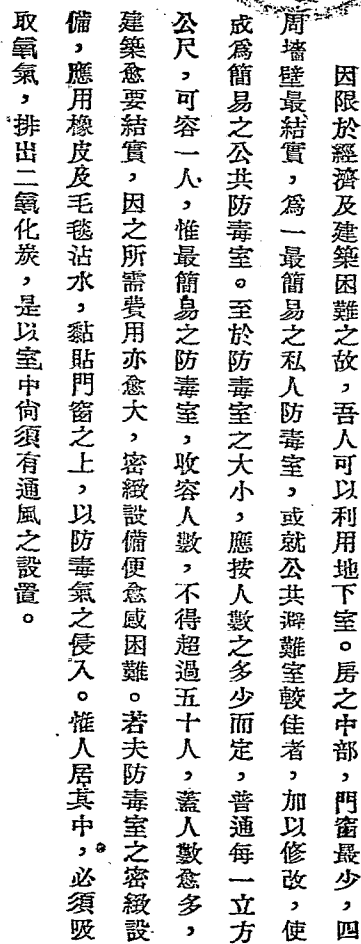 因限於經濟及建築困難之故，吾人可以利用地下室。房之中部，門窗最少，四
周墻壁最結實，爲一最簡易之私人防毒室，或就公共避難室較佳者，加以修改，使
成爲簡易之公共防毒室。至於防毒室之大小，應按人數之多少而定，普通每一立方
公尺，可容一人，惟最簡易之防毒室，收容人數，不得超過五十人，蓋人數愈多，
建築愈要結實，因之所需費用亦愈大，密緻設備便愈感困難。若夫防毒室之密緻設
備，應用橡皮及毛毯沾水，黏貼門窗之上，以防毒氣之侵入。惟人居其中，必須吸
取氧氣，排出二氧化炭，是以室中尙須有通風之設置。